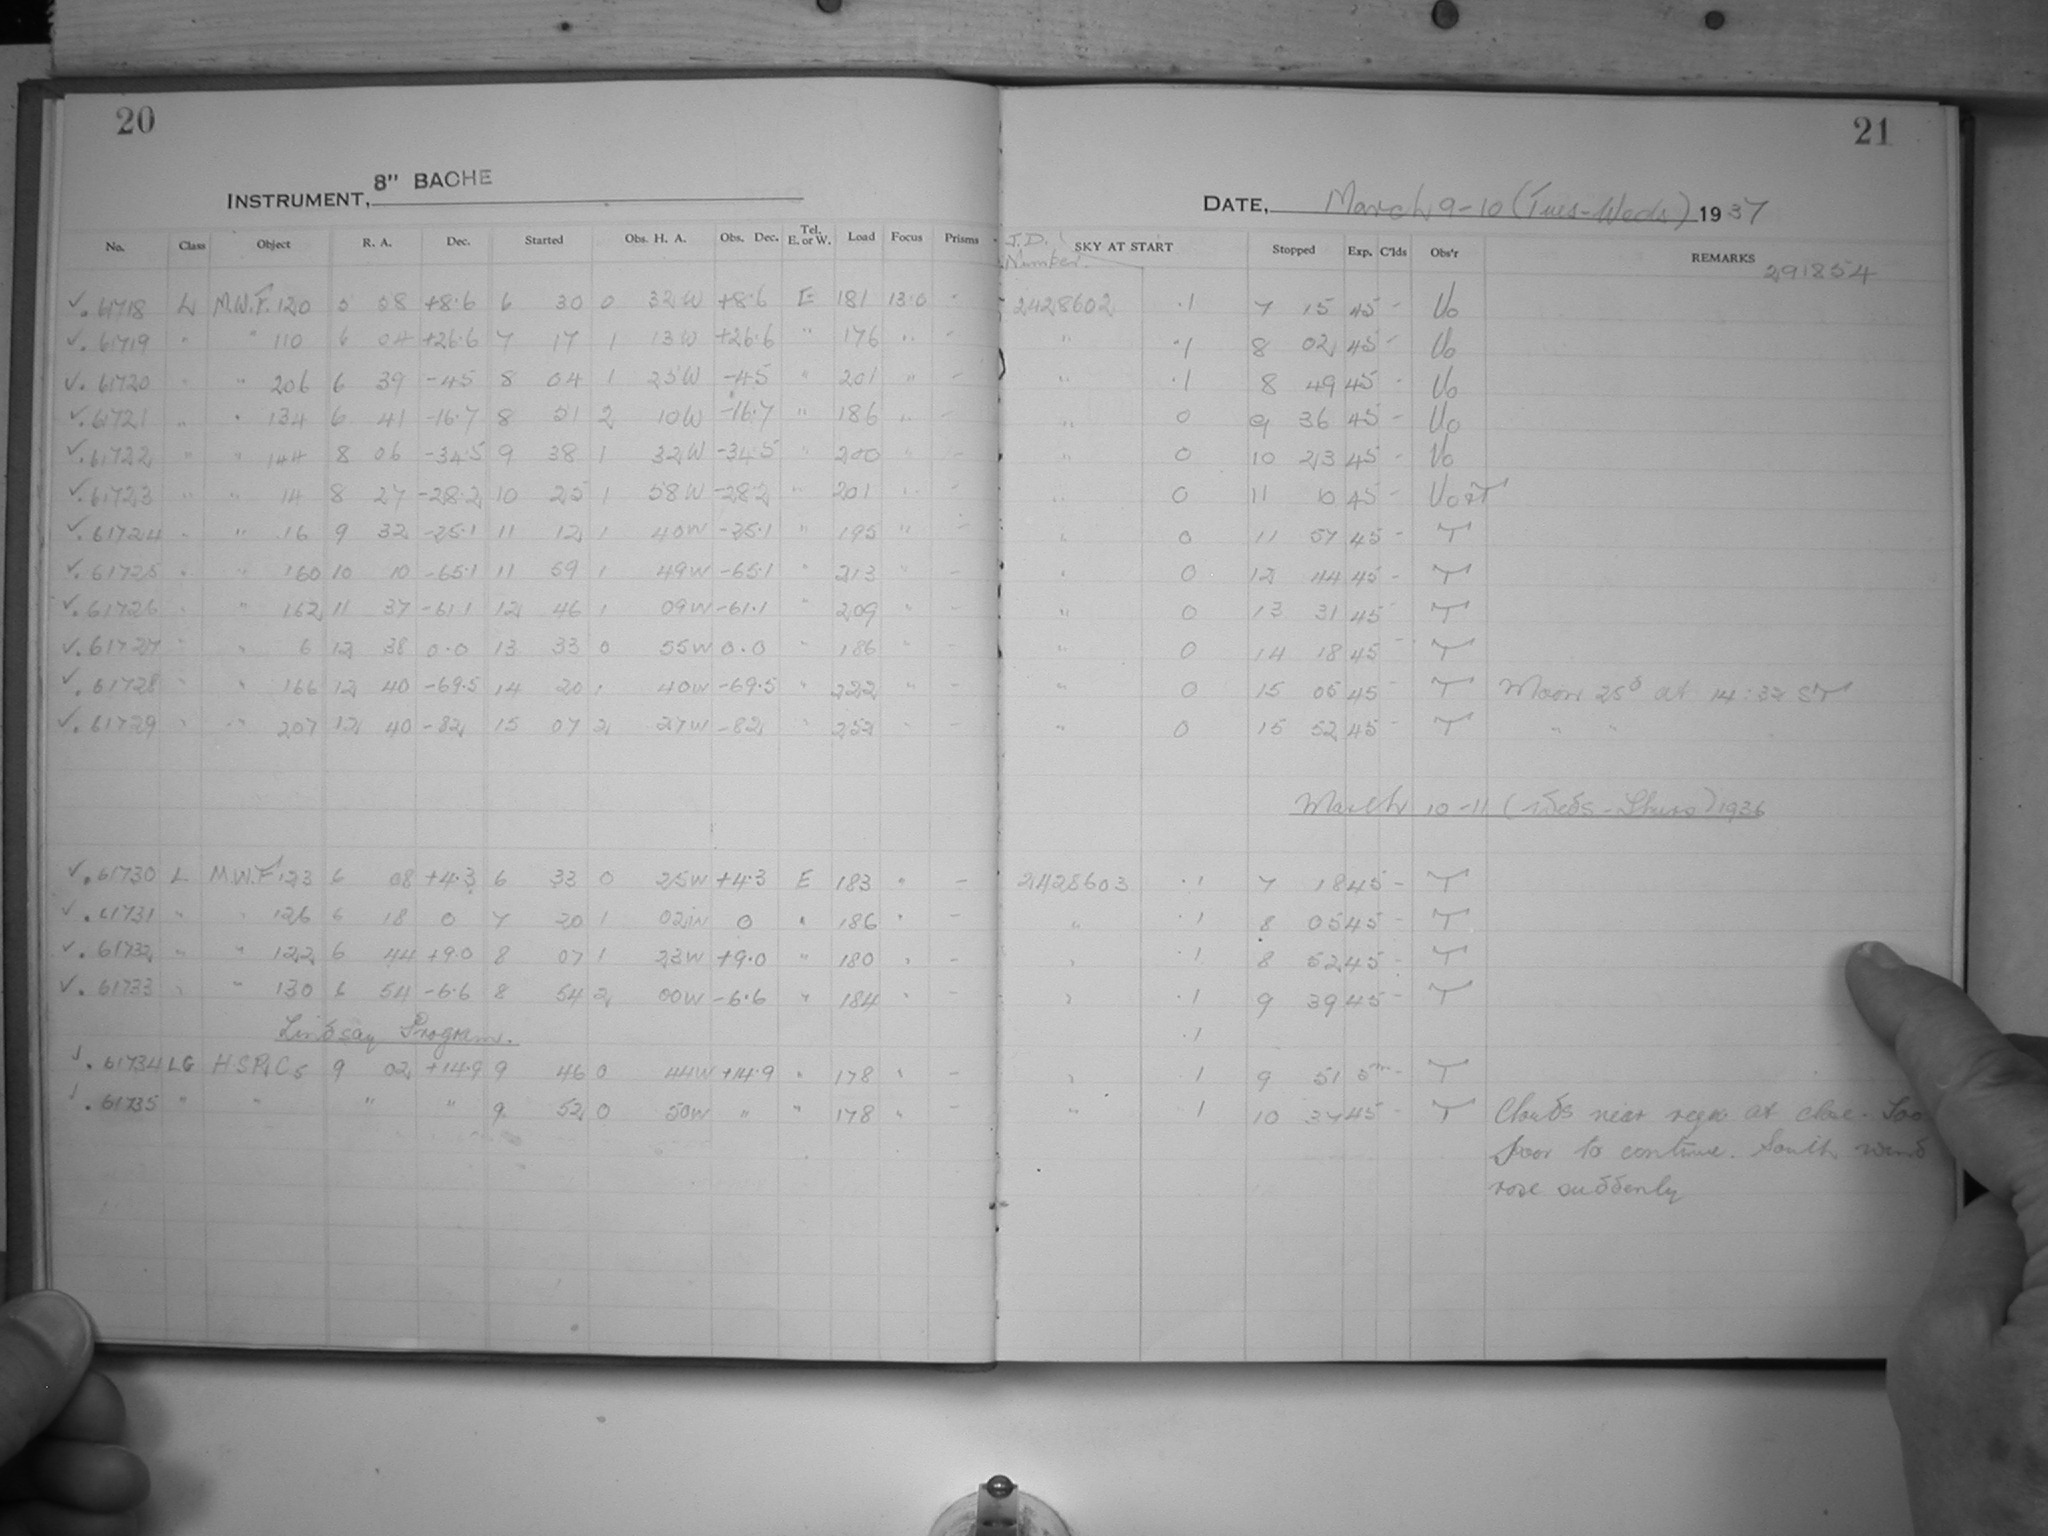 20
21
INSTRUMENT, 8" BACHE
DATE, March 9-10 (Tues-Weds) 1937
No. Class Object R. A. Dec. Started Obs. H. A. Obs. Dec. Tel. E. or W. Load Focus Prisms J.D. Number SKY AT START Stopped Exp. C'lds Obs'r REMARKS
291854
✓. 61718 L M.W.F. 120 5 58 +8.6 6 30 0 32W +8.6 E 181 13.0 - 2428602 .1 7 15 45 - Uo
✓. 61719 " " 110 6 04 +26.6 7 17 1 13W +26.6 " 176 " - " .1 8 02 45 - Uo
✓. 61720 " " 206 6 39 -45 8 04 1 25W -45 " 201 " - " .1 8 49 45 - Uo
✓. 61721 " " 134 6 41 -16.7 8 51 2 10W -16.7 " 186 " - " 0 9 36 45 - Uo
✓. 61722 " " 144 8 06 -34.5 9 38 1 32W -34.5 " 200 " - " 0 10 23 45 - Uo
✓. 61723 " " 14 8 27 -28.2 10 25 1 58W -28.2 " 201 " - " 0 11 10 45 - Uo & T
✓. 61724 " " 16 9 32 -25.1 11 12 1 40W -25.1 " 195 " - " 0 11 57 45 - T
✓. 61725 " " 160 10 10 -65.1 11 59 1 49W -65.1 " 213 " - " 0 12 44 45 - T
✓. 61726 " " 162 11 37 -61.1 12 46 1 09W -61.1 " 209 " - " 0 13 31 45 - T
✓. 61727 " " 6 12 38 0.0 13 33 0 55W 0.0 " 186 " - " 0 14 18 45 - T
✓. 61728 " " 166 12 40 -69.5 14 20 1 40W -69.5 " 222 " - " 0 15 05 45 - T Moon 25d at 14:32 ST
✓. 61729 " " 207 12 40 -82 15 07 2 27W -82 " 252 " - " 0 15 52 45 - T " "
March 10-11 (Weds-Thurs) 1936
✓. 61730 L M.W.F. 123 6 08 +4.3 6 33 0 25W +4.3 E 183 " - 2428603 .1 7 18 45 - T
✓. 61731 " " 126 6 18 0 7 20 1 02W 0 " 186 " - " .1 8 05 45 - T
✓. 61732 " " 122 6 44 +9.0 8 07 1 23W +9.0 " 180 " - " .1 8 52 45 - T
✓. 61733 " " 130 6 54 -6.6 8 54 2 00W -6.6 " 184 " - " .1 9 39 45 - T
Lindsay Program. .1
✓. 61734 LG HSPC5 9 02 +14.9 9 46 0 44W +14.9 " 178 " - " .1 9 51 5m - T
✓. 61735 " " " " 9 52 0 50W " " 178 " - " .1 10 37 45 - T Clouds near region at close. Too
poor to continue. South wind
rose suddenly